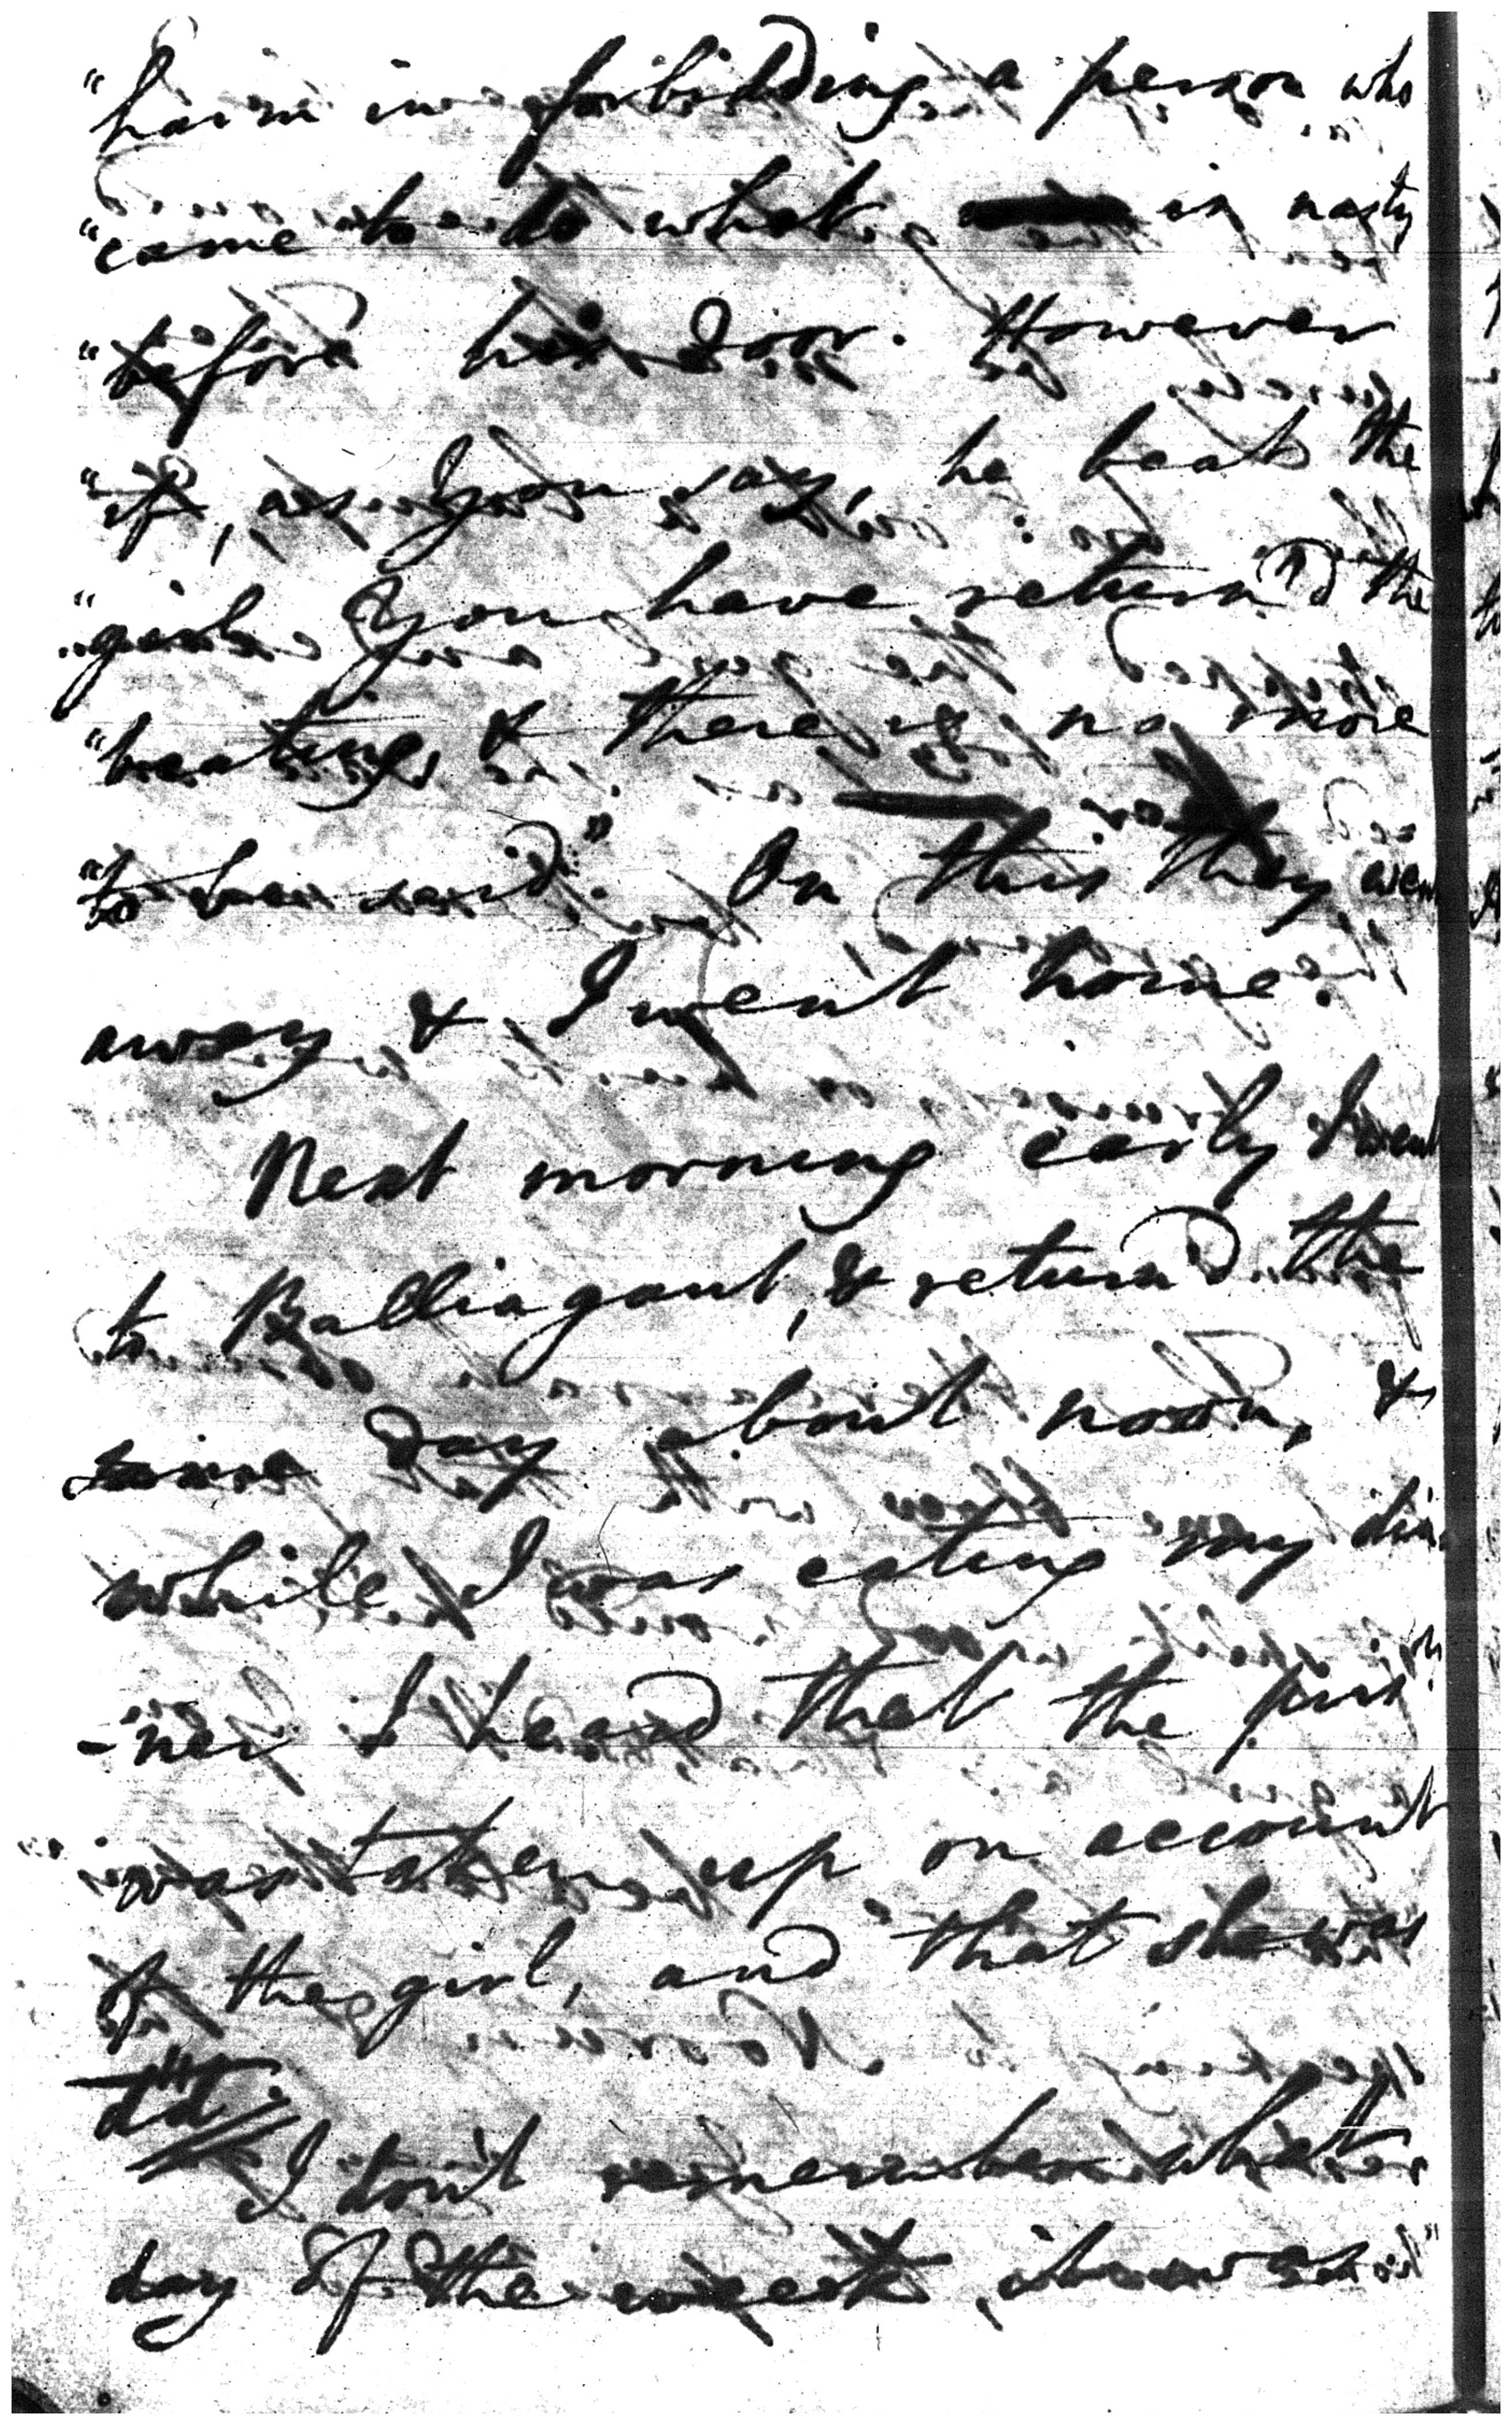 "harm in forbidding a person who
"came to do what is nasty
"before his door. However
"if, as you say, he beat the
"girl you have return'd the
"beating, & there is no more
"to be said". On this they went
away & I went home.
Next morning early I went
to Balliagaut, & return'd the
same day about noon, &
while I was eating my din
-ner I heard that the prisr
was taken up on account
of the girl, and that she was
dd.
I don't remember what
day of the week it was